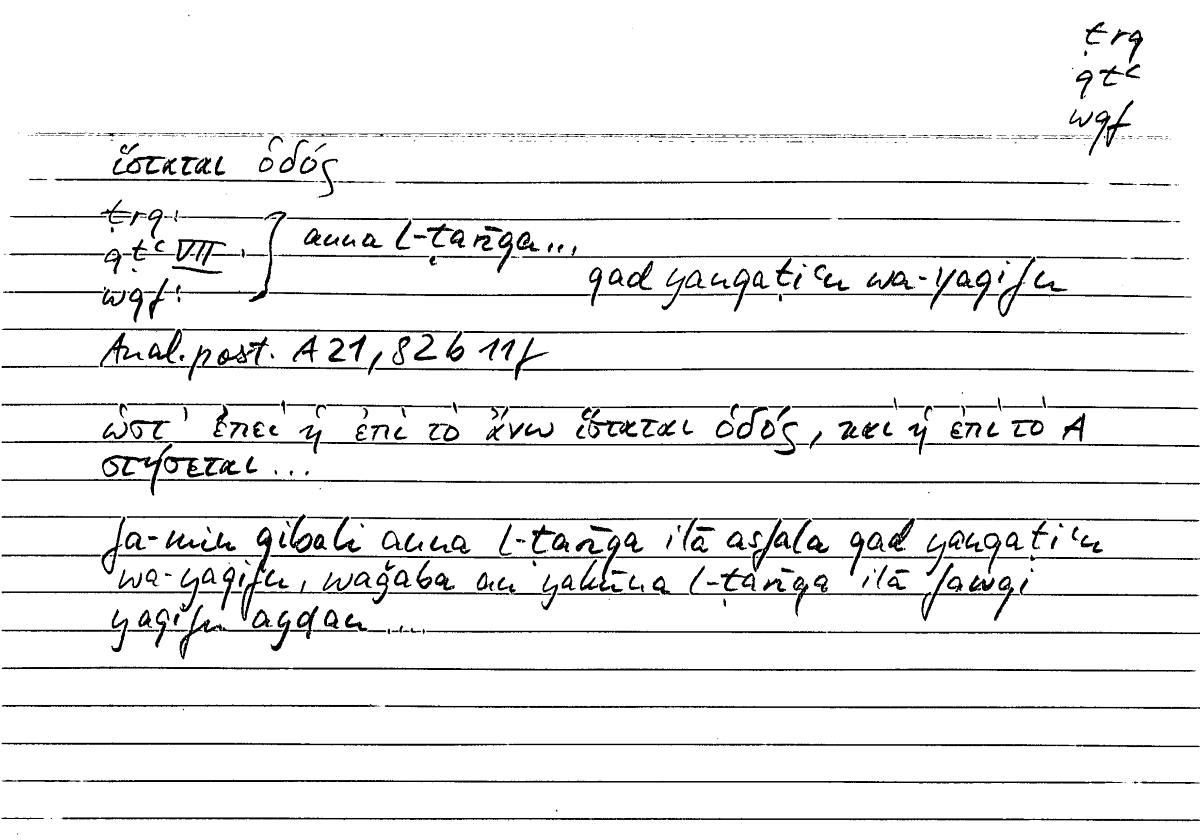 ṭrq
qṭʿ
wqf
ἵσταται ὁδός
ṭrq:
qṭʿ VII:
wqf:
anna l-ṭarīqa...
qad yanqaṭiʿu wa-yaqifu
Anal. post. A 21, 82 b 11f
ὥστ' ἐπεὶ ἡ ἐπὶ τὸ ἄνω ἵσταται ὁδός, καὶ ἡ ἐπὶ τὸ Α
στήσεται...
fa-min qibali anna l-ṭarīqa ilā asfala qad yanqaṭiʿu
wa-yaqifu, waǧaba an yakūna l-ṭarīqa ilā fawqi
yaqifu ayḍan ...